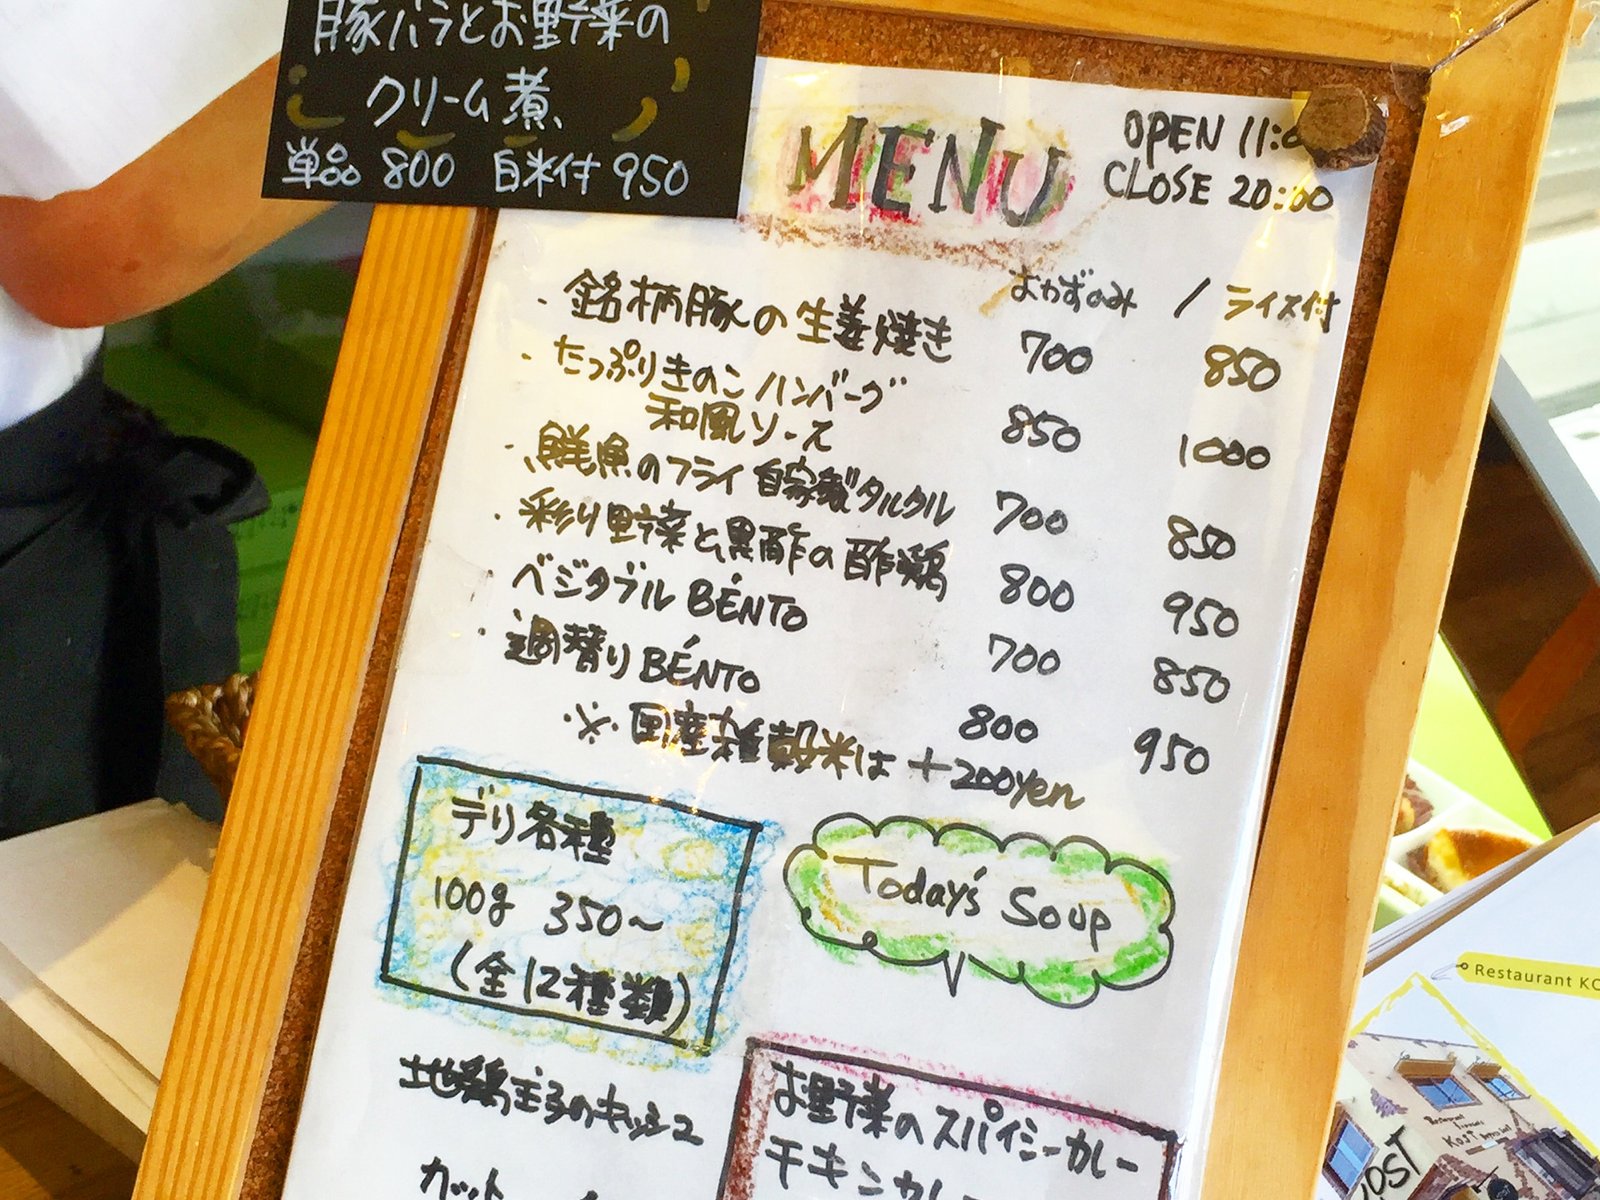 豚バラとお野菜の
クリーム煮
単品 800 白米付 950
MENU
OPEN 11:
CLOSE 20:00
おかずのみ / ライス付
・銘柄豚の生姜焼き 700 850
・たっぷりきのこハンバーグ
和風ソース 850 1000
・鮮魚のフライ 自家製タルタル 700 850
・彩り野菜と黒酢の酢鶏 800 950
・ベジタブル BENTO 700 850
・週替り BENTO 800 950
※国産雑穀米は +200yen
デリ各種
100g 350~
(全12種類)
Today's Soup
地鶏玉子のキッシュ
カット
お野菜のスパイシーカレー
チキンカレー
Restaurant KO
KOST